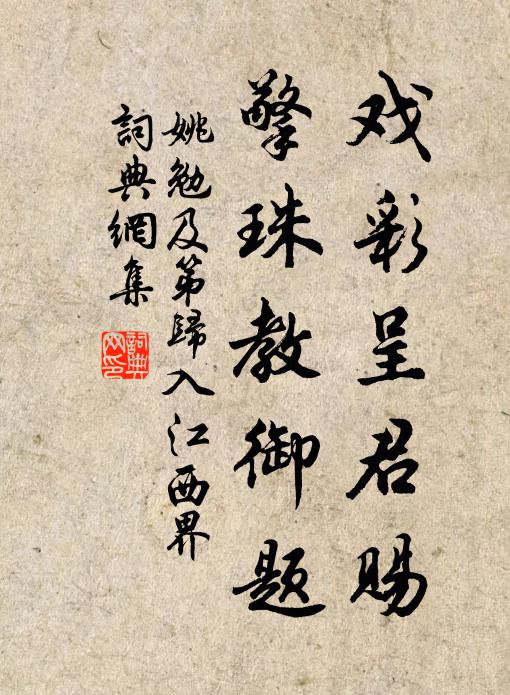 戏彩呈君赐
擎珠教御题
姚勉及第歸入江西界
詞典網集
詞典网印